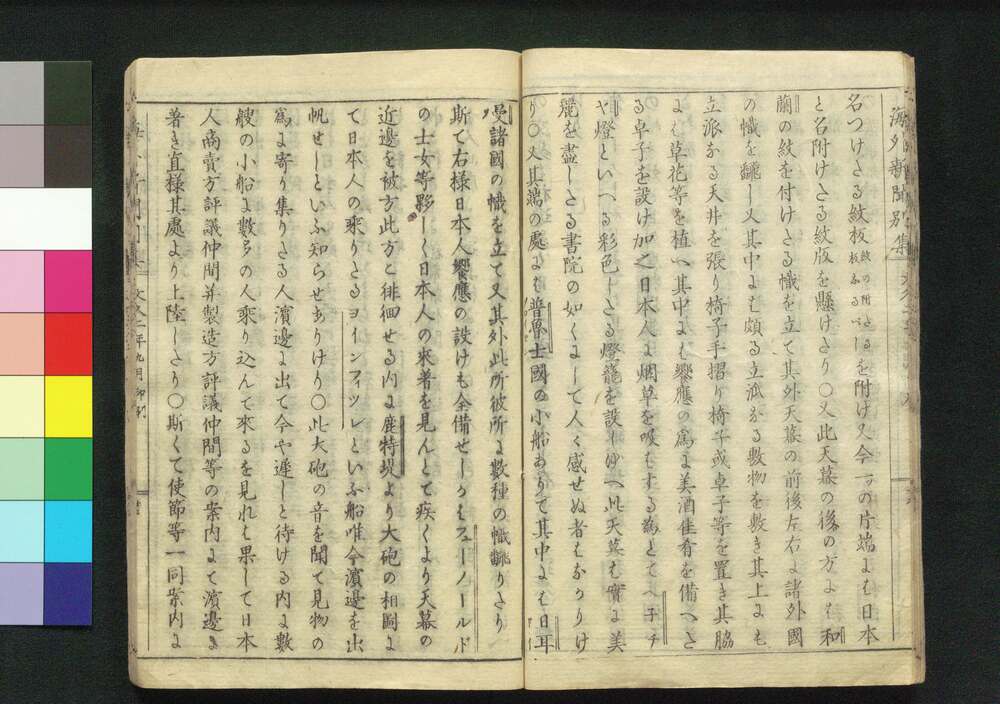 海外新聞別集
名つけたる紋板紋の附たる板なるべしを附け又今一方の片端には日本
と名附けたる紋版を懸けたり〇又此天幕の後の方には和
蘭の紋を付けたる幟を立て其外天幕の前後左右に諸外國
の幟を飜し又其中には頗る立派なる敷物を敷き其上にも
立派なる天井を張り椅子手摺り椅子或卓子等を置き其脇
には草花等を植へ其中には饗應の爲に美酒佳肴を備へた
る卓子を設け加之日本人に烟草を吸はする為とてヘ子チ
ヤ燈といへる彩色したる燈籠を設け此天幕は實に美
麗を盡したる書院の如くにして人々感せぬ者はなかりけ
り〇又其端の處には普魯士國の小船ありて其中には日耳
曼諸國の幟を立て又其外此所彼所に數種の幟飜りたり
斯て右様日本人饗應の設けも全備せしかはフーノールド
の士女等夥しく日本人の來着を見んとて疾くより天幕の
近邊を彼方此方と徘徊せる内に鹿特堤より大砲の相圖に
て日本人の乘りたるヨインフィツレといふ船唯今濱邊を出
帆せしといふ知らせありけり〇此大砲の音を聞て見物の
爲に寄り集りたる人濱邊に出て今や遲しと待ける内に數
艘の小船に數多の人乘り込んて來るを見れは果して日本
人商賣方評議仲間并製造方評議仲間等の案内にて濱邊に
着き直様其處より上陸したり〇斯くて使節等一同案内に